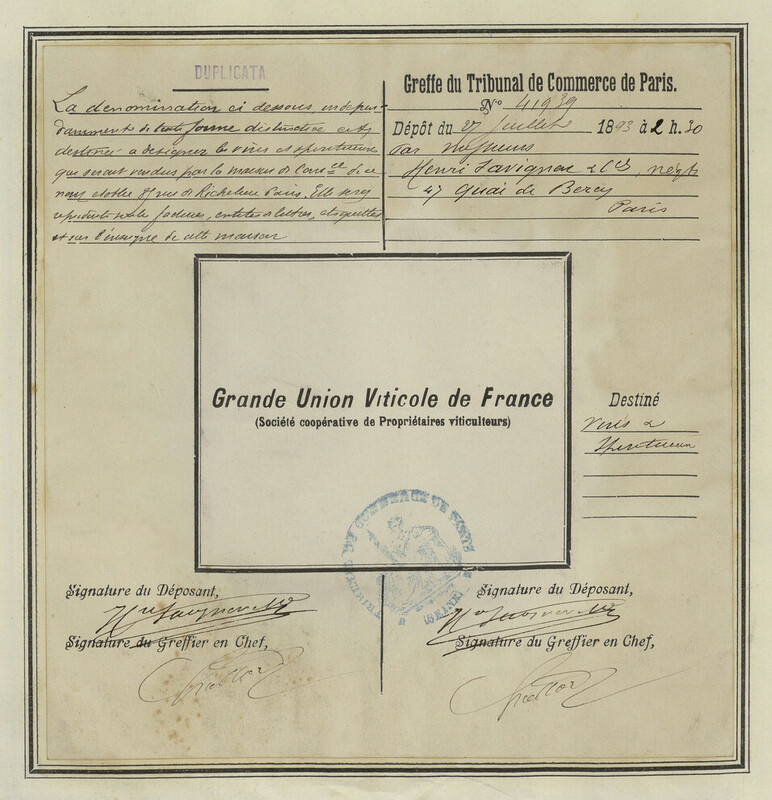 DUPLICATA
La dénomination ci dessous indépen-
damment de toute forme distinctive est
destinée à désigner les vins et spiritueux
que seront vendus par la maison
rue de Richelieu Paris. Elle sera
factures, entêtes de lettres, étiquettes
et sur l'enseigne de cette maison
Greffe du Tribunal de Commerce de Paris.
No 41939
Dépôt du 27 Juillet 1893 à 2 h. 30
Par Messieurs
Henri Savignac & Cie, négts
47 Quai de Bercy
Paris
Grande Union Viticole de France
(Société coopérative de Propriétaires viticulteurs)
Destiné
Vins &
Spiritueux
TRIBUNAL DE COMMERCE DE PARIS
(SEINE)
Signature du Déposant,
Signature du Greffier en Chef,
Signature du Déposant,
Signature du Greffier en Chef,